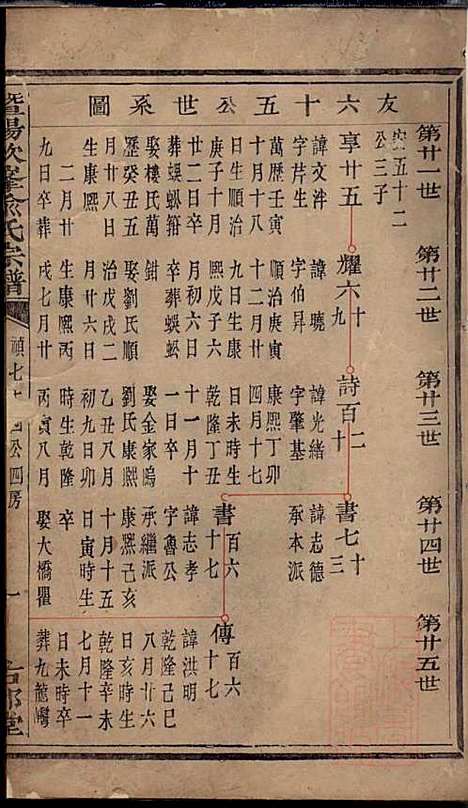 友六十五公世系圖
第廿一世
第廿二世
第廿三世
第廿四世
第廿五世
安五十二
公三子
享廿五
諱文泮
字芹生
萬歷壬寅
十月十八
日生順治
庚子十月
廿二日卒
葬蜈蚣箝
娶樓氏萬
歷癸丑五
月廿八日
生康熙
二月廿
九日卒葬
耀六十九
諱曉
字伯昇
順治庚寅
十二月廿
九日生康
熙戊子六
月初六日
卒葬蜈蚣
鉗
娶劉氏順
治戊戌二
月廿六日
生康熙丙
戌七月廿
詩百二十
諱光緒
字肇基
康熙丁卯
四月十七
日未時生
乾隆丁丑
十一月十
一日卒
娶金家塢
劉氏康熙
乙丑八月
初九日卯
時生乾隆
丙寅八月
書七十三
諱志德
承本派
書百六十七
諱志孝
字魯公
承繼派
康熙己亥
十月十五
日寅時生
卒
娶大橋瞿
傳百六十七
諱洪明
乾隆己巳
八月廿六
日亥時生
乾隆辛未
七月十一
日未時卒
葬九龍
暨陽次峯俞氏宗譜
公四房
一
堂